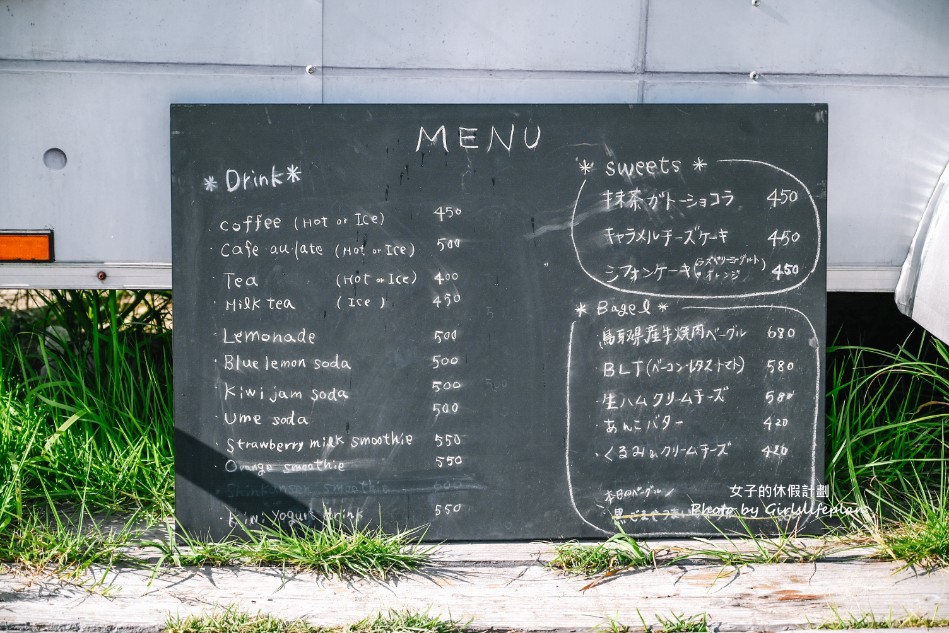 MENU
* Drink *
・coffee (Hot or Ice) 450
・Cafe au late (Hot or Ice) 500
・Tea (Hot or Ice) 400
・Milk tea (Ice) 450
・Lemonade 500
・Blue lemon soda 500
・Kiwi jam soda 500
・Ume soda 500
・Strawberry milk smoothie 550
・Orange smoothie 550
smoothie 600
・Kiwi Yogurt drink 550
* sweets *
抹茶ガトーショコラ 450
キャラメルチーズケーキ 450
シフォンケーキ 450
オレンジ
* Bagel *
鳥取県産牛焼肉ベーグル 680
・BLT(ベーコンレタストマト) 580
・生ハムクリームチーズ 580
・あんこバター 420
・くるみ&クリームチーズ 420
本日のベーグル
女子的休假計劃
Photo by Girlslifeplan